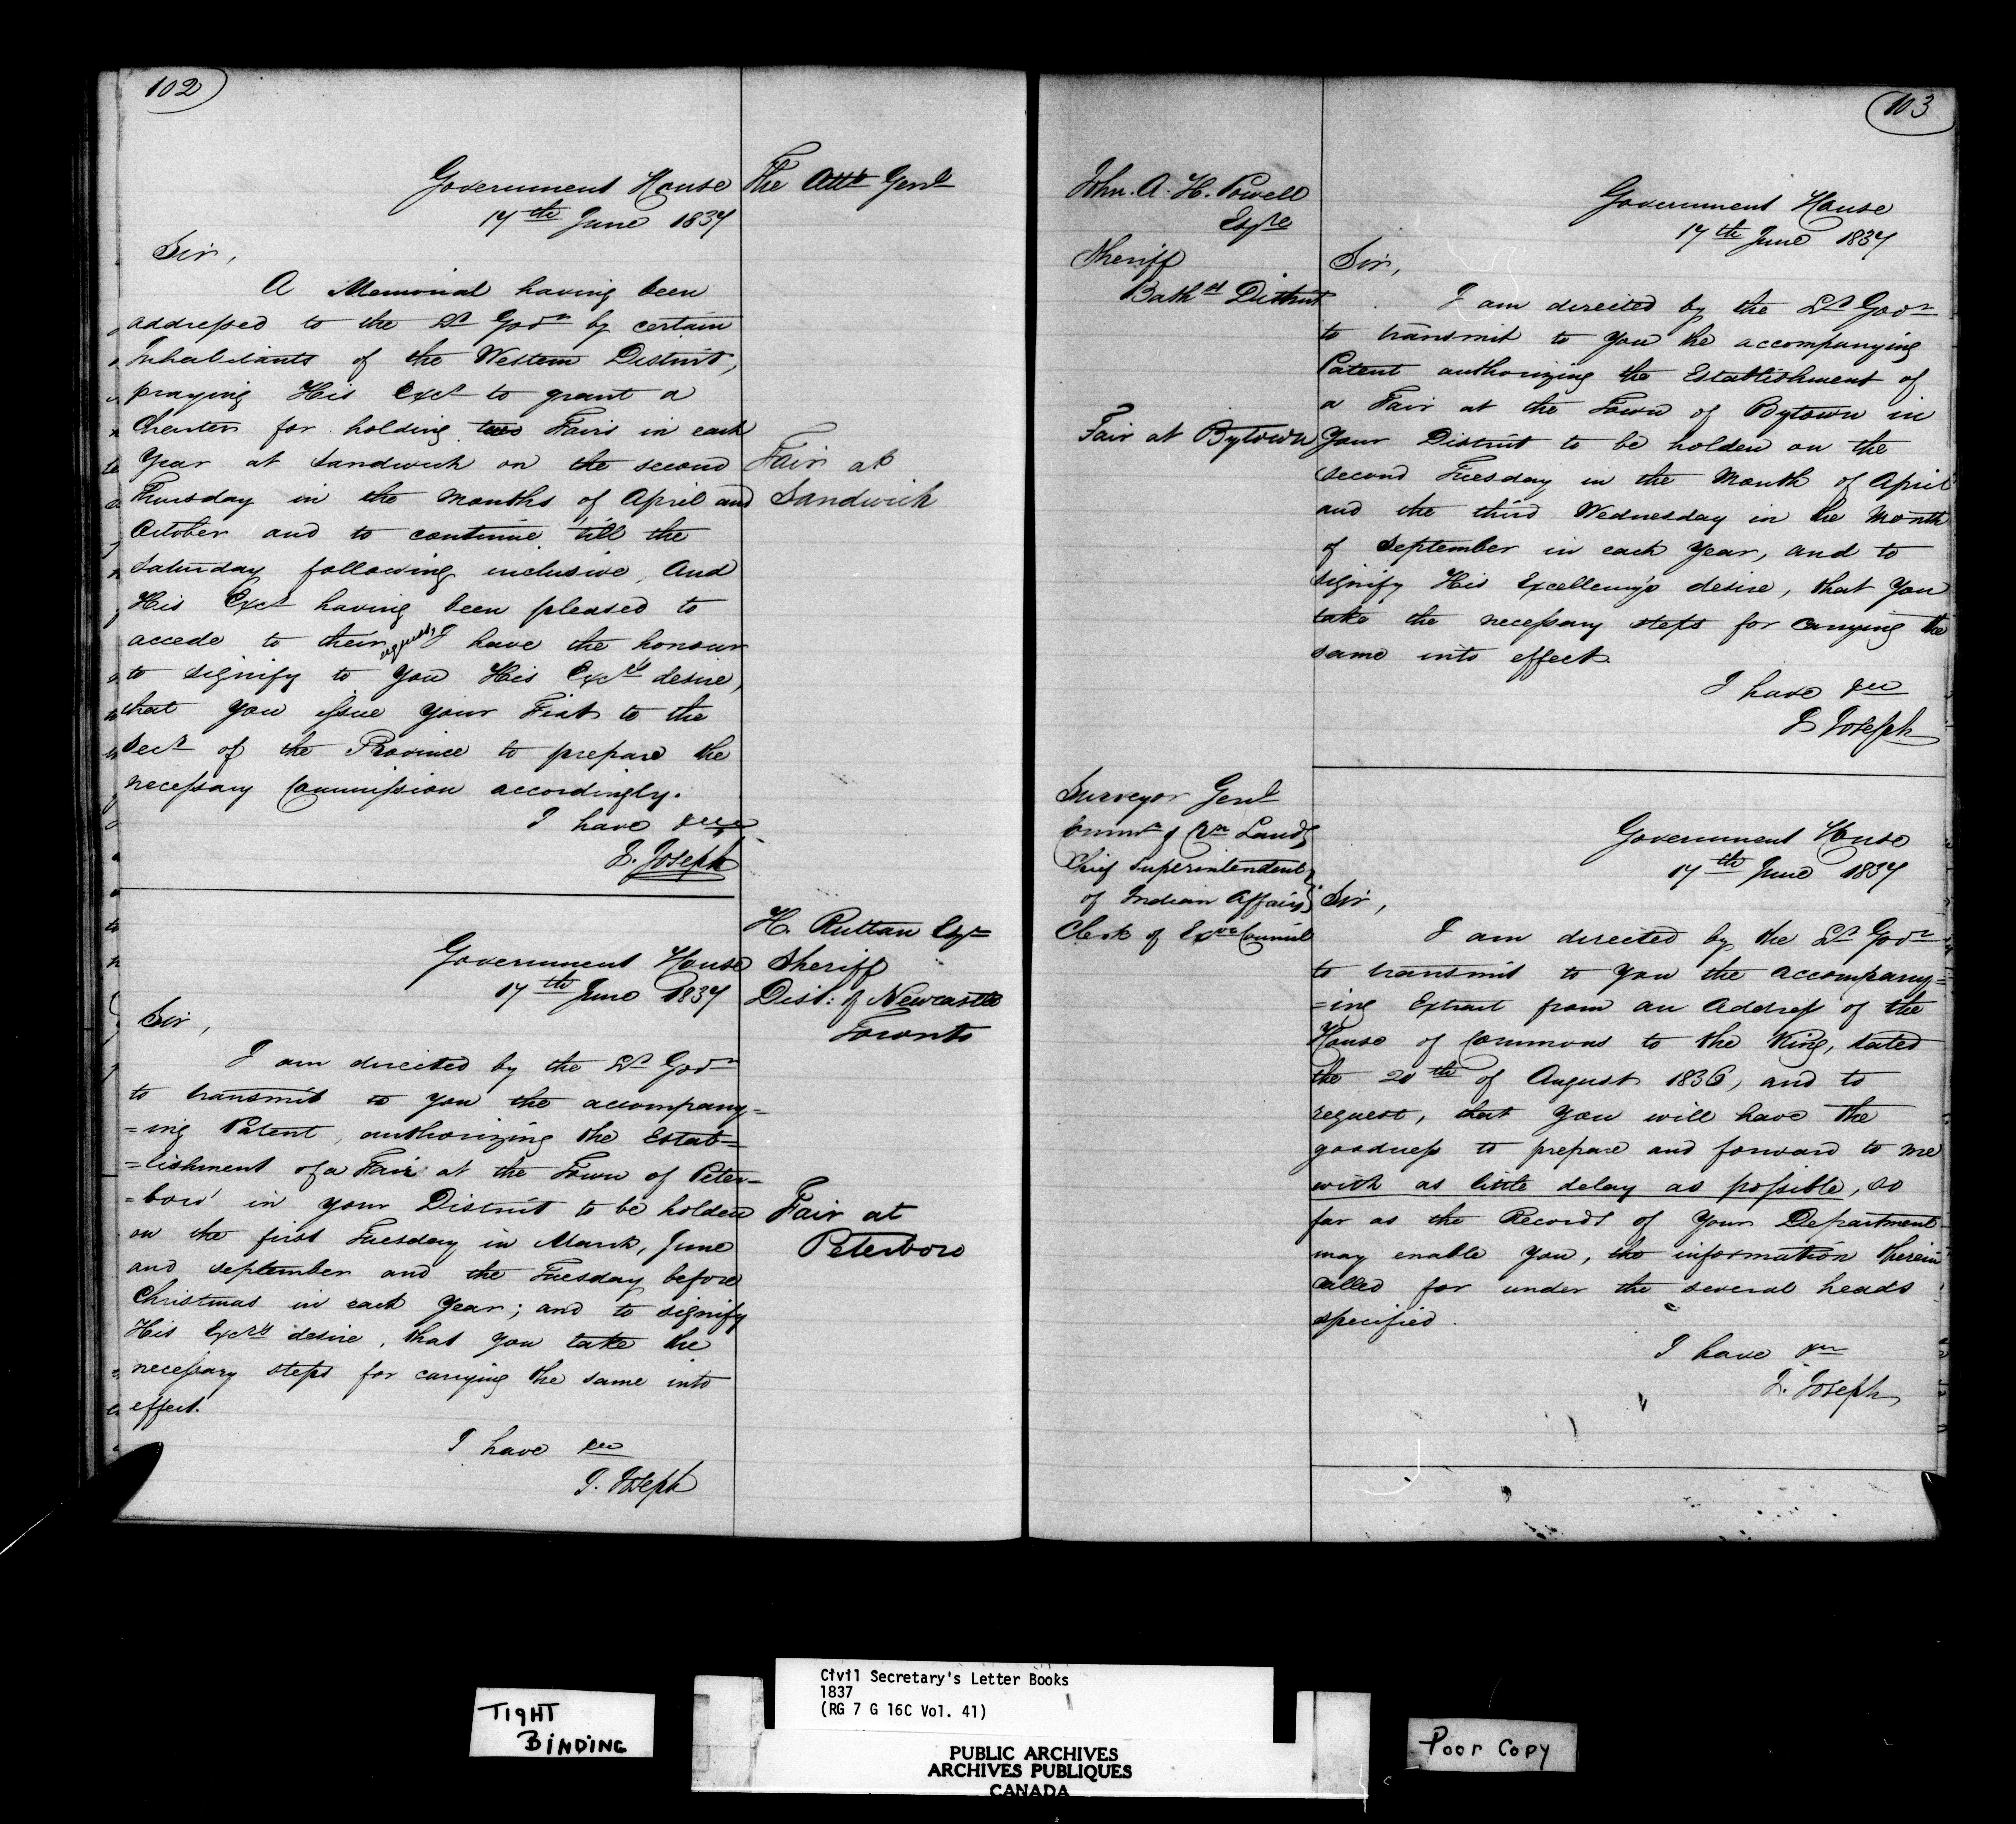 102
Government House
17th June 1837
The Atty Genl
Sir,
A Memorial having been
addressed to the Lt Govr by certain
Inhabitants of the Western District,
praying His Excy to grant a
Charter for holding two Fairs in each
Year at Sandwich on the second
Fair at
Thursday in the Months of April and
Sandwich
October and to continue 'till the
Saturday following inclusive, And
His Excy having been pleased to
accede to their request, I have the honour
to signify to You His Excy's desire,
that You issue Your Fiat to the
Secy of the Province to prepare the
necessary Commission accordingly.
I have &c
J. Joseph
H. Ruttan Esqr
Sheriff
Dist: of Newcastle
Toronto
Government House
17th June 1837
Sir,
I am directed by the Lt Govr
to transmit to you the accompany=
=ing Patent, authorizing the Estab=
=lishment of a Fair at the Town of Peter=
=boro' in your District to be holden
Fair at
Peterboro
on the first Tuesday in March, June
and September and the Tuesday before
Christmas in each Year; and to signify
His Excy's desire, that you take the
necessary steps for carrying the same into
effect.
I have &c
J. Joseph
103
John. A. H. Powell
Esqre
Sheriff
Bathst District
Government House
17th June 1837
Sir,
I am directed by the Lt Govr
to transmit to You the accompanying
Patent authorizing the Establishment of
a Fair at the Town of Bytown in
Fair at Bytown
Your District to be holden on the
second Tuesday in the Month of April
and the third Wednesday in the Month
of September in each Year, and to
signify His Excellency's desire, that You
take the necessary steps for carrying the
same into effect.
I have &c
J Joseph
Surveyor Genl
Commr of Crn Lands
Chief Superintendent
of Indian Affairs
Clerk of Exve Council
Government House
17th June 1837
Sir,
I am directed by the Lt Govr
to transmit to You the accompany=
=ing Extract from an Address of the
House of Commons to the King, dated
the 20th of August 1836, and to
request, that You will have the
goodness to prepare and forward to me
with as little delay as possible, so
far as the Records of Your Department
may enable You, the information therein
called for under the several heads
specified.
I have &c
J. Joseph
TIGHT
BINDING
Civil Secretary's Letter Books
1837
(RG 7 G 16C Vol. 41)
PUBLIC ARCHIVES
ARCHIVES PUBLIQUES
CANADA
Poor Copy